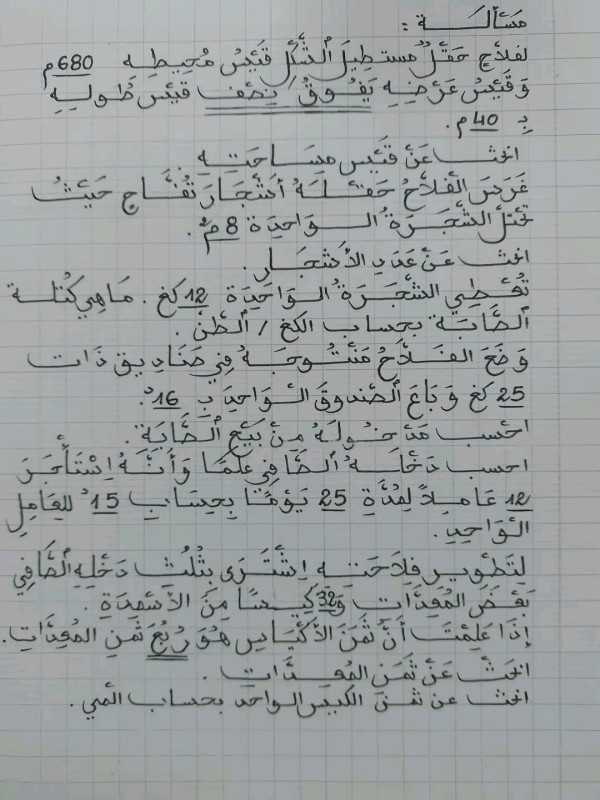 مَسْأَلَــــــة :
لفلاحٍ حَقْلٌ مستطِيلَ الشَّكْلِ قَيْسُ مُحِيطِهِ 680م
وَقَيْسُ عَرْضِهِ يَفُوقُ نِصْفَ قَيْسِ طُولِهِ
بِ 40م.
ابْحَثْ عَنْ قَيْسِ مِسَاحَتِهِ
غَرَسَ الْفَلاَّحُ حَقْلَهُ أَشْجَارَ تُفَّاحٍ حَيْثُ
تَحْتَلُّ الشَّجَرَةُ الوَاحِدَةُ 8م².
ابحث عَنْ عَدَدِ الأَشْجَارِ.
تُعْطِي الشَّجَرَةُ الوَاحِدَةُ 12كغ. مَا هِيَ كُتْلَةُ
الصَّابَةِ بحساب الكغ / الطّنّ.
وَضَعَ الفَلاَّحُ مَنْتُوجَهُ فِي صَنَادِيق ذَات
25 كغ وَبَاعَ الصّندوقَ الوَاحِدَ بِ 16د.
احْسب مَدْخُولَهُ مِنْ بَيْعِ الصَّابَةِ.
احسب دَخْلَهُ الصَّافِي عِلْمًا وَأَنَّهُ اسْتَأْجَرَ
12 عَامِلاً لِمُدَّةِ 25 يَوْمًا بِحِسَابِ 15د للعَامِلِ
الوَاحِدِ.
لِتَطْوِيرِ فِلاَحَتِهِ اشْتَرَى بِثُلُثِ دَخْلِهِ الصَّافِي
بَعْضَ المُعِدَّاتِ وَ32 كِيسًا مِنَ الأَسْمِدَةِ.
إذَا عَلِمْتَ أَنَّ ثَمَنَ الأَكْيَاسِ هُوَ رُبُعُ ثَمَنِ المُعِدَّاتِ.
ابْحَثْ عَنْ ثَمَنِ المُعِدَّاتِ.
ابحث عن ثمن الكيس الواحد بحساب المي.